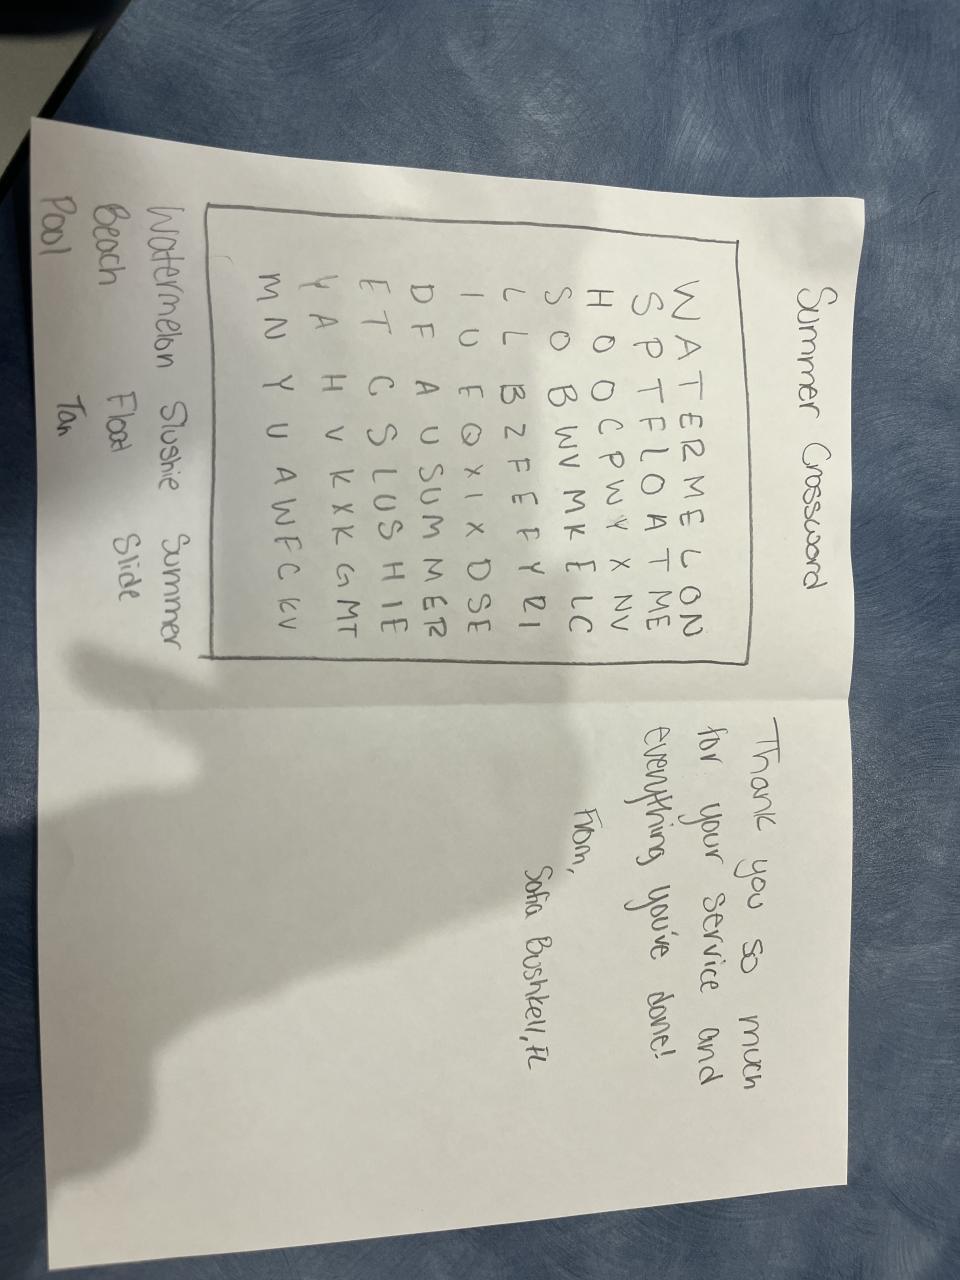 Summer Crossword
W A T E R M E L O N
S P T F L O A T M E
H O O C P W Y X N V
S O B W V M K E L C
L L B Z F E F Y R I
I U E Q X I X D S E
D F A U S U M M E R
E T C S L U S H I E
Y A H V K X K G M T
M N Y U A W F C K V
Watermelon Slushie Summer
Beach Float Slide
Pool Tan
Thank you so much
for your service and
everything you've done!
From,
Sofia Bushkell, FL